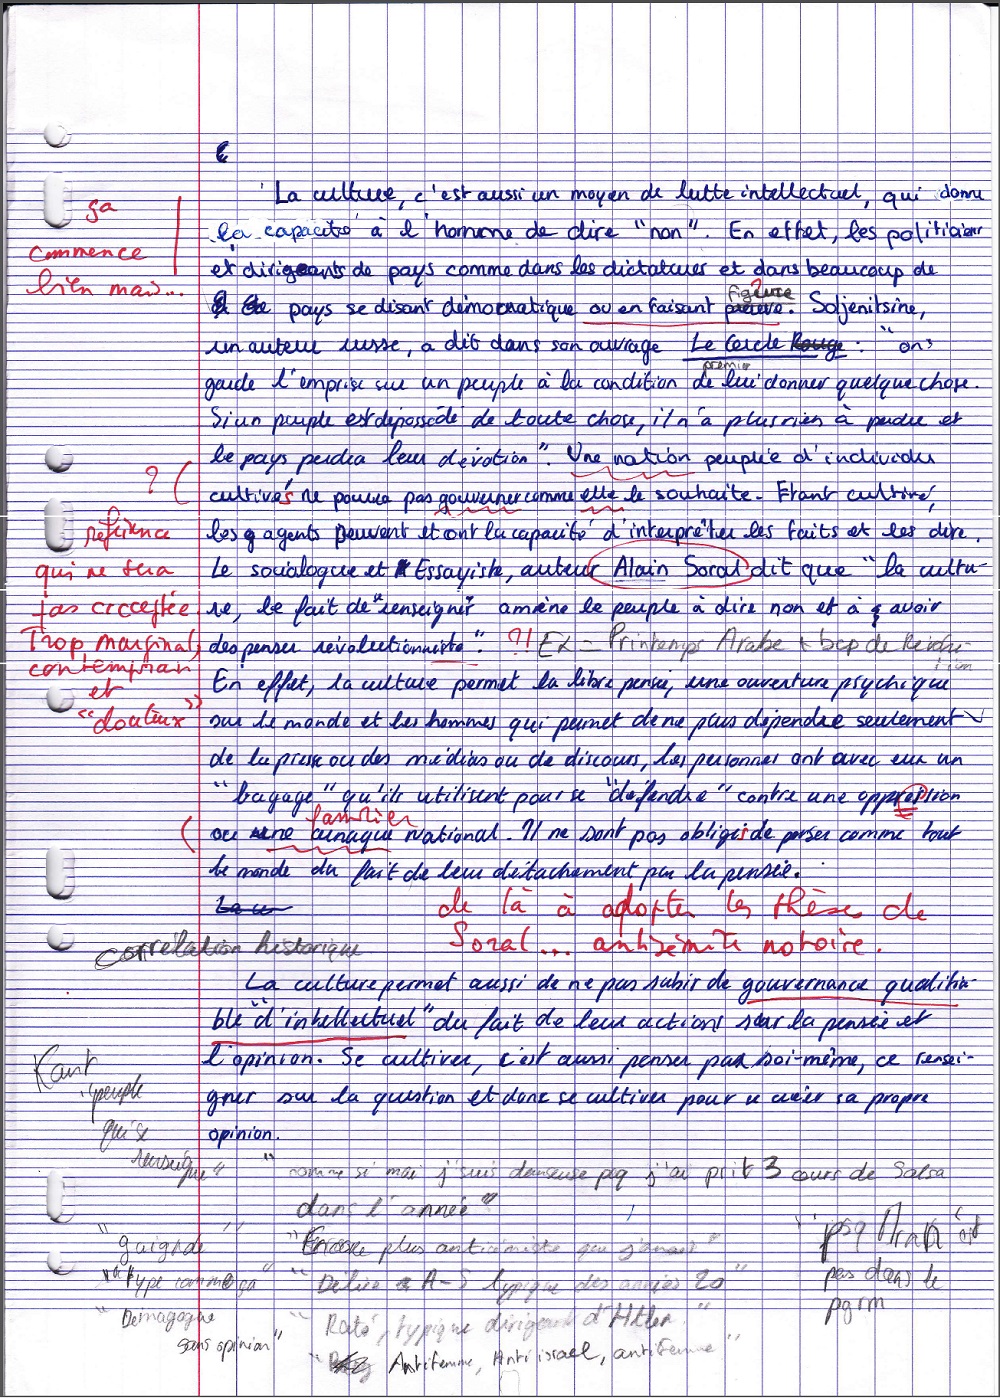 La culture, c'est aussi un moyen de lutte intellectuel, qui donne
ça
la capacité à l'homme de dire "non". En effet, les politiciens
commence
et dirigeants de pays comme dans les dictatures et dans beaucoup de
bien mais...
figure
pays se disant démocratique ou en faisant preuve. Soljenitsine,
un auteur russe, a dit dans son ouvrage Le Cercle Rouge : "on
premier
garde l'emprise sur un peuple à la condition de lui donner quelque chose.
Si un peuple est dépossédé de toute chose, il n'a plus rien à perdre et
le pays perdra leur dévotion". Une nation peuplée d'individu
?
cultivés ne pourra pas gouverner comme elle le souhaite. Etant cultivé,
référence
les agents peuvent et ont la capacité d'interprêter les faits et les dire.
qui ne sera
Le socialogue et Essayiste, auteur Alain Soral dit que "la cultu-
pas acceptée
re, le fait de "renseigner" amène le peuple à dire non et à avoir
Trop marginal,
des penser révolutionniste". ?! Ex = Printemps Arabe + bcp de Révolu-
tion
contemporain
et
En effet, la culture permet la libre pensée, une ouverture psychique
"douteux"
sur le monde et les hommes qui permet de ne plus dépendre seulement
de la presse ou des médias ou de discours, les personnes ont avec eux un
"bagage" qu'ils utilisent pour se "défendre" contre une oppression
familier
ou une arnaque national. Il ne sont pas obligés de penser comme tout
le monde du fait de leur détachement par la pensée.
de là à adopter les thèses de
Soral... antisémite notoire.
correlation historique
La culture permet aussi de ne pas subir de gouvernance qualifia-
ble "d'intellectuel" du fait de leur actions sur la pensée et
l'opinion. Se cultiver, c'est aussi penser par soi-même, ce rensei-
Kant
"peuple
gner sur la question et donc se cultiver pour se créer sa propre
qui se
opinion.
renseigne"
"comme si moi j'suis danseuse pcq j'ai prit 3 cours de Salsa
dans l'année"
"guignole"
"Encore plus anticémiste que j'avais"
"psq était
"type comme ça"
"Délire A-S typique des années 20"
pas dans le
pgrm
"Démagogue
sans opinion"
"Raté, typique dirigeant d'Hitler"
"Antifemme, Anti israel, antifemme"